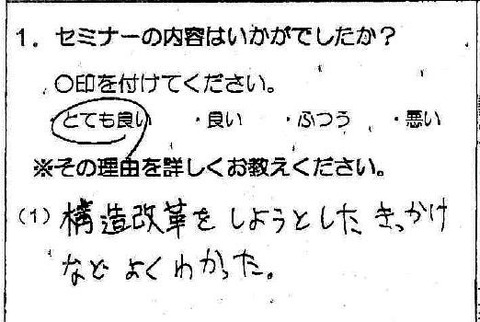 1．セミナーの内容はいかがでしたか？
○印を付けてください。
・とても良い ・良い ・ふつう ・悪い
※その理由を詳しくお教えください。
(1) 構造改革をしようとしたきっかけ
などよくわかった。